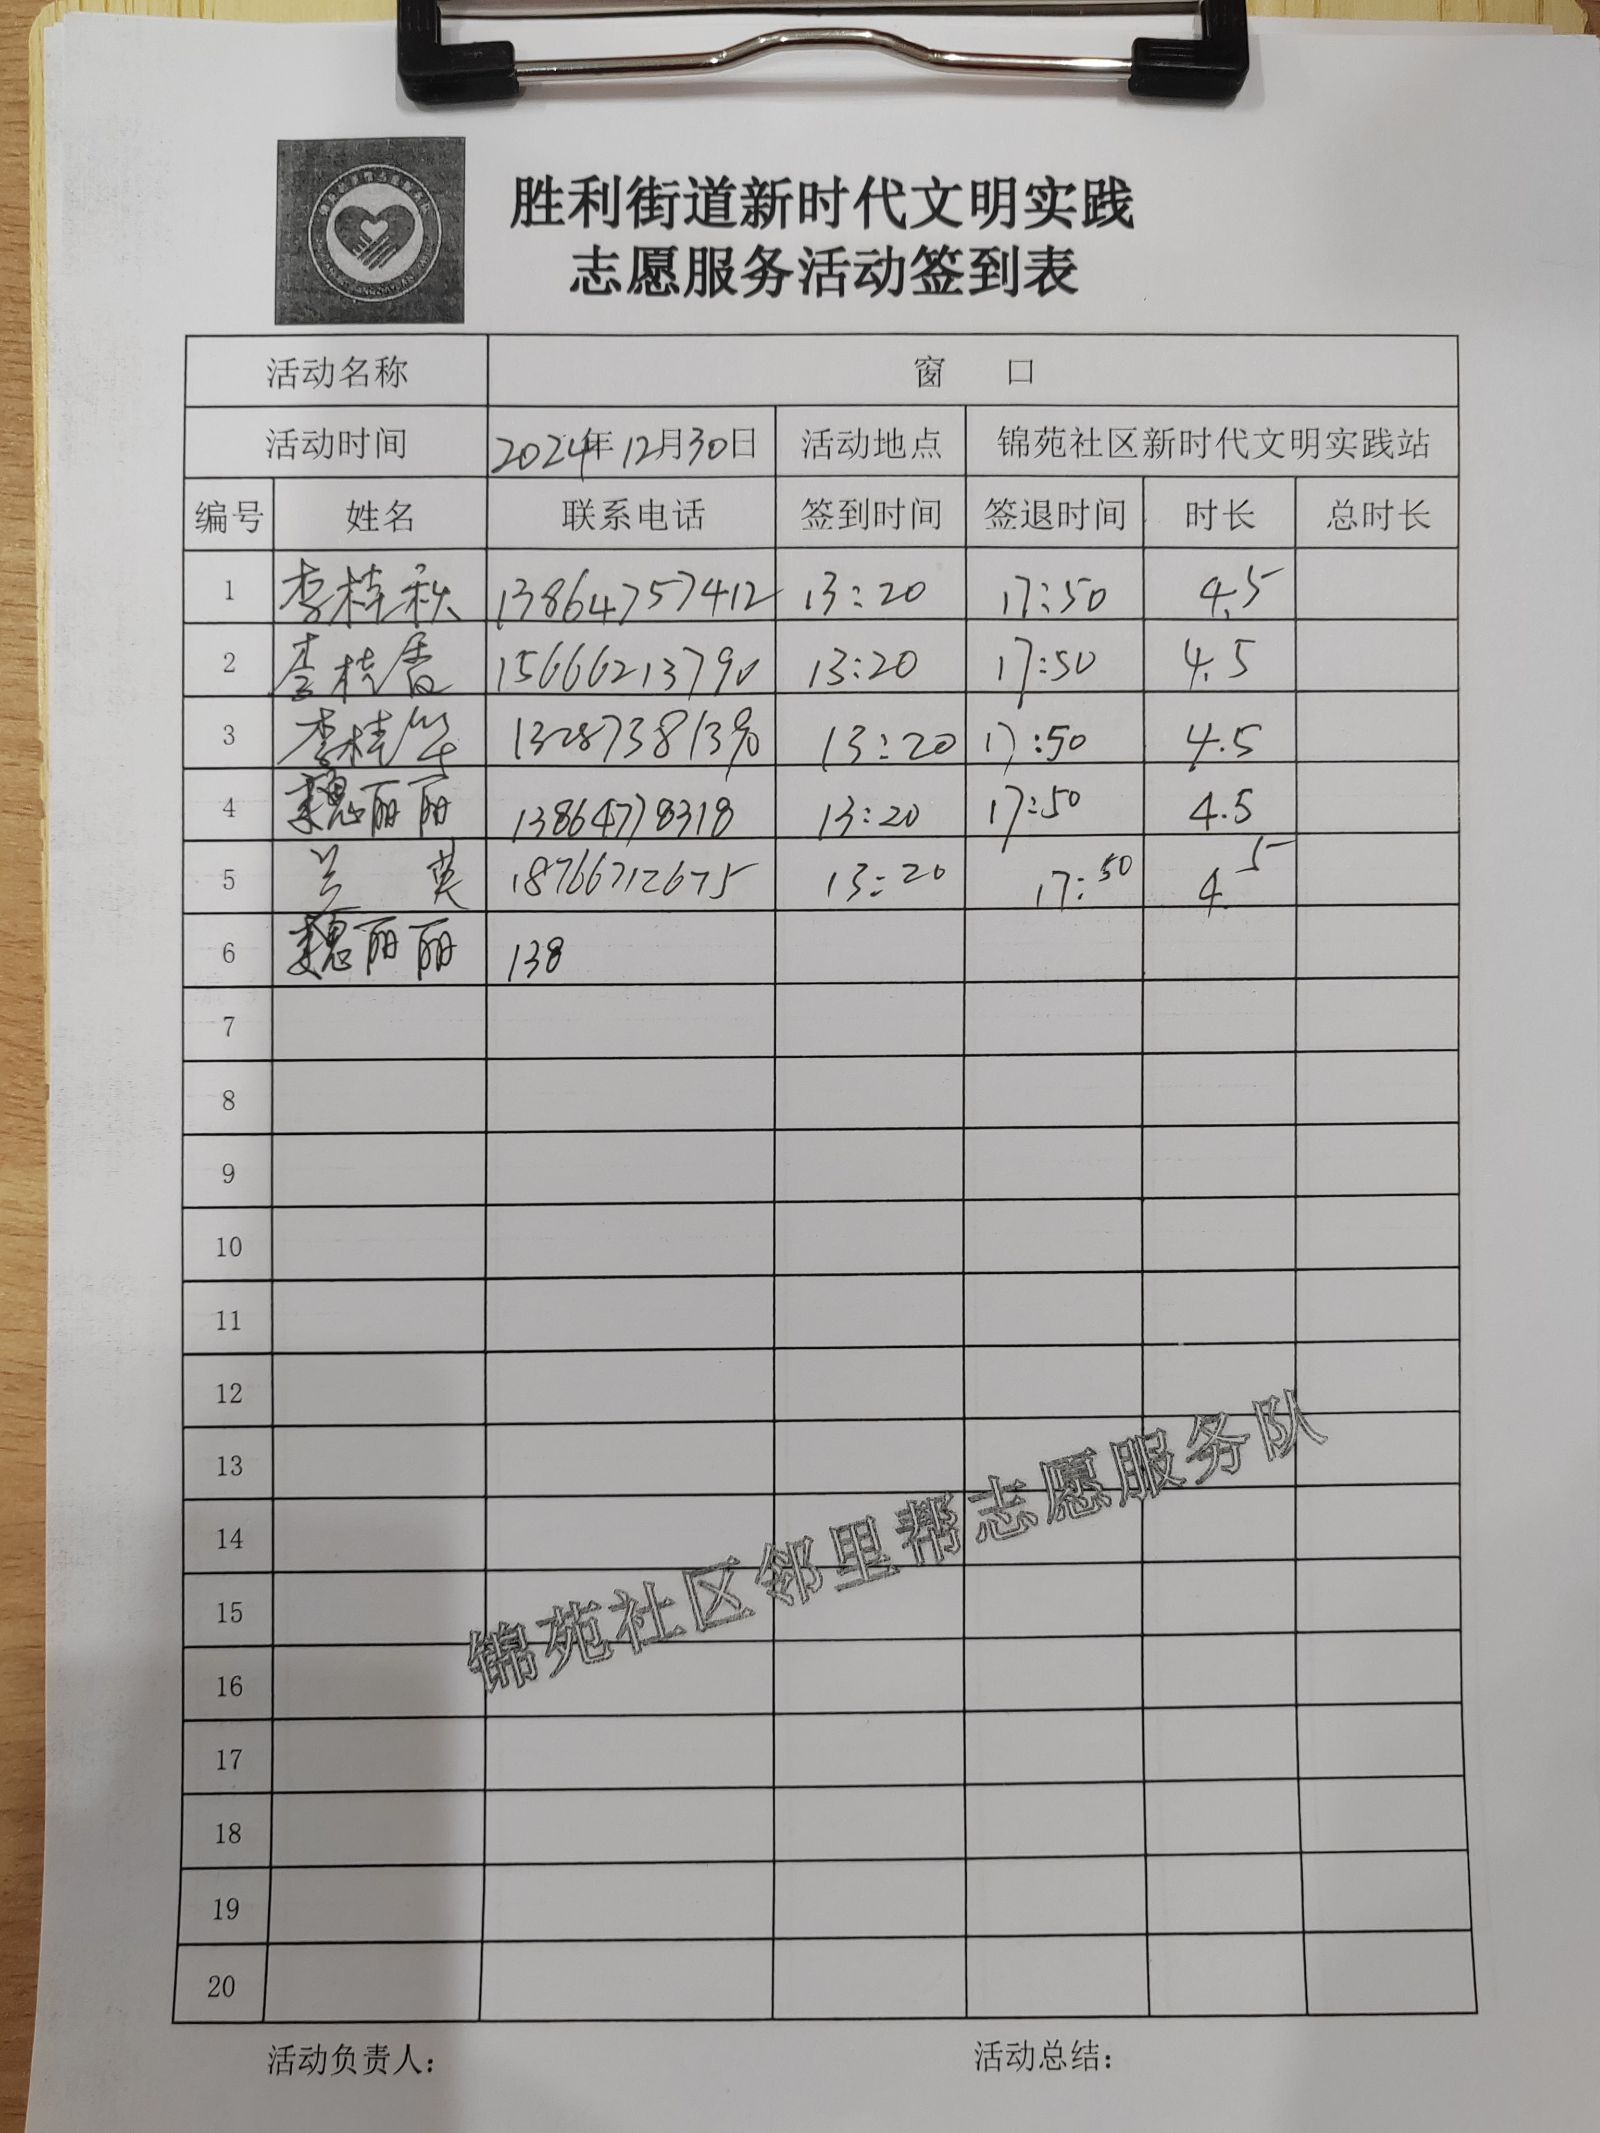 胜利街道新时代文明实践
志愿服务活动签到表
活动名称 窗 口
活动时间 2024年12月30日 活动地点 锦苑社区新时代文明实践站
编号 姓名 联系电话 签到时间 签退时间 时长 总时长
1 李桂秋 13864757412 13:20 17:50 4.5
2 李桂香 15666213790 13:20 17:50 4.5
3 李桂华 13287381390 13:20 17:50 4.5
4 魏丽丽 13864778318 13:20 17:50 4.5
5 兰英 18766712675 13:20 17:50 4.5
6 魏丽丽 138
7
8
9
10
11
12
13
14
15
16
17
18
19
20
锦苑社区邻里帮志愿服务队
活动负责人： 活动总结：